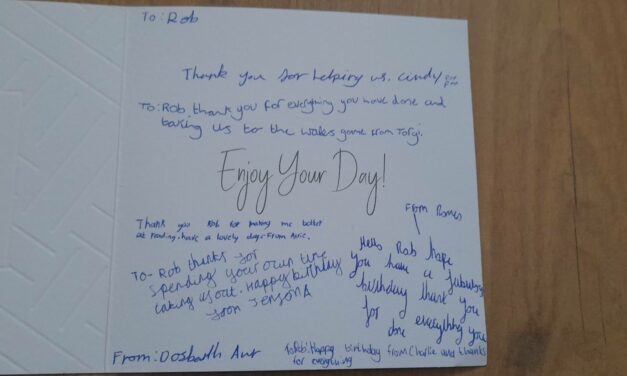 To: Rob
Thank you for helping us. Cindy
To: Rob thank you for everything you have done and
taking us to the wales game from Torgi.
Enjoy Your Day!
Thank you Rob for making me better
at reading. have a lovely day. From Auric.
To- Rob thanks for
spending your own time
taking us out. Happy birthday
From Jenson A
From Romeo
Hello Rob hope
you have a fabulous
birthday thank you
for
done everything you
From: Dosbarth Aur
To Rob: Happy birthday from Charlie and thanks
for everything